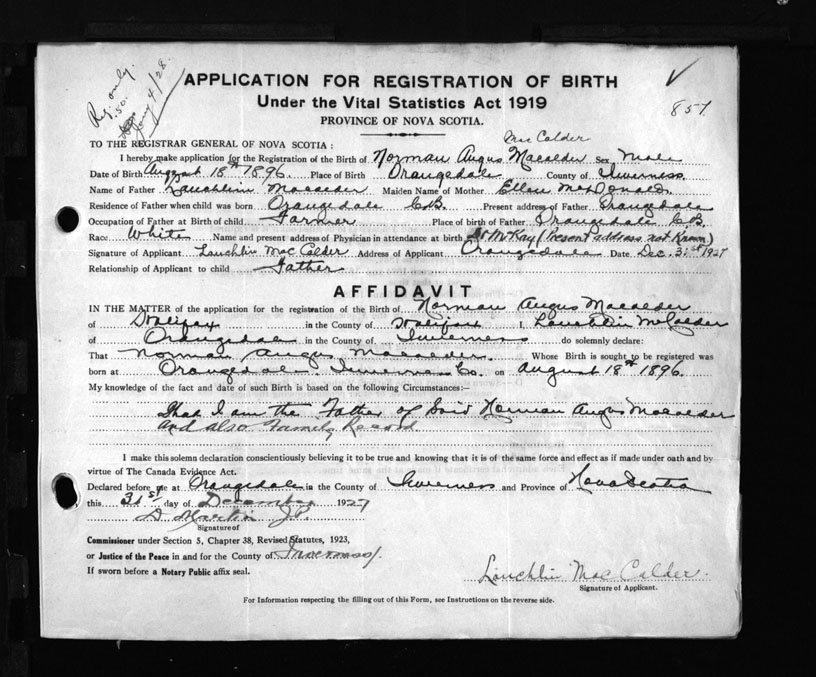 Reg. only.
.50.
Jany 4/28.
857.
APPLICATION FOR REGISTRATION OF BIRTH
Under the Vital Statistics Act 1919
PROVINCE OF NOVA SCOTIA.
TO THE REGISTRAR GENERAL OF NOVA SCOTIA :
Mac Calder
I hereby make application for the Registration of the Birth of Norman Angus Macalder Sex Male
Date of Birth August 18th 1896. Place of Birth Orangedale County of Inverness.
Name of Father Lauchlin Macalder Maiden Name of Mother Ellen McDonald.
Residence of Father when child was born Orangedale C.B. Present address of Father Orangedale
Occupation of Father at Birth of child Farmer Place of birth of Father Orangedale C.B.
Race White Name and present address of Physician in attendance at birth Dr McKay (Present address not Known)
Signature of Applicant Lauchlin Mac Calder Address of Applicant Orangedale Date Dec. 31st 1927
Relationship of Applicant to child Father
AFFIDAVIT
IN THE MATTER of the application for the registration of the Birth of Norman Angus Macalder
of Halifax in the County of Halifax I, Lauchlin McCalder
of Orangedale in the County of Inverness do solemnly declare:
That Norman Angus Macalder. Whose Birth is sought to be registered was
born at Orangedale. Inverness Co. on August 18th 1896.
My knowledge of the fact and date of such Birth is based on the following Circumstances:-
That I am the Father of Said Norman Angus Macalder
and also Family Record
I make this solemn declaration conscientiously believing it to be true and knowing that it is of the same force and effect as if made under oath and by
virtue of The Canada Evidence Act.
Declared before me at Orangedale in the County of Inverness and Province of Nova Scotia
this 31st day of December 1927
D Martin J.P.
Signature of
Commissioner under Section 5, Chapter 38, Revised Statutes, 1923,
or Justice of the Peace in and for the County of Inverness
If sworn before a Notary Public affix seal.
Lauchlin Mac Calder.
Signature of Applicant.
For Information respecting the filling out of this Form, see Instructions on the reverse side.